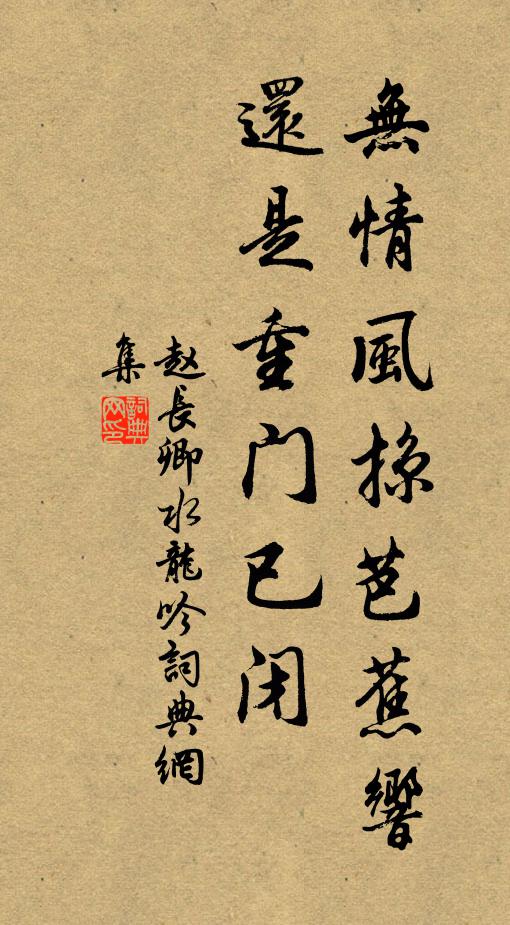 無情風掠芭蕉響
還是重门已闭
赵長卿水龍吟詞典網
集
詞典
网印